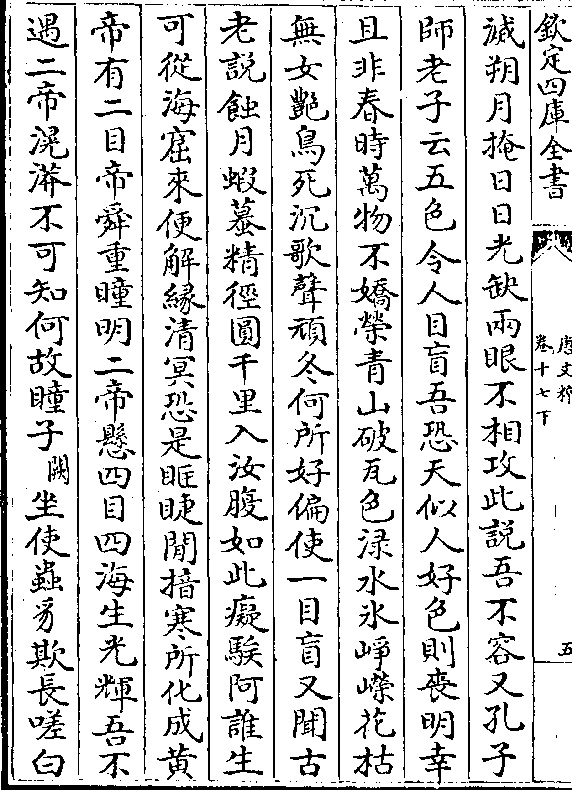 欽定四庫全書
唐文粹
卷十七下
五
滅朔月掩日日光缺兩眼不相攻此說吾不容又孔子
師老子云五色令人目盲吾恐天似人好色則喪明幸
且非春時萬物不嬌榮青山破瓦色渌水氷崢嶸花枯
無女艷鳥死沉歌聲頑冬何所好偏使一目盲又聞古
老說蝕月蝦蟇精徑圓千里入汝腹如此癡騃阿誰生
可從海窟來便解緣清冥恐是眶睫間揞寒所化成黄
帝有二目帝舜重瞳明二帝懸四目四海生光輝吾不
遇二帝滉漭不可知何故瞳子闕坐使蟲豸欺長嗟白